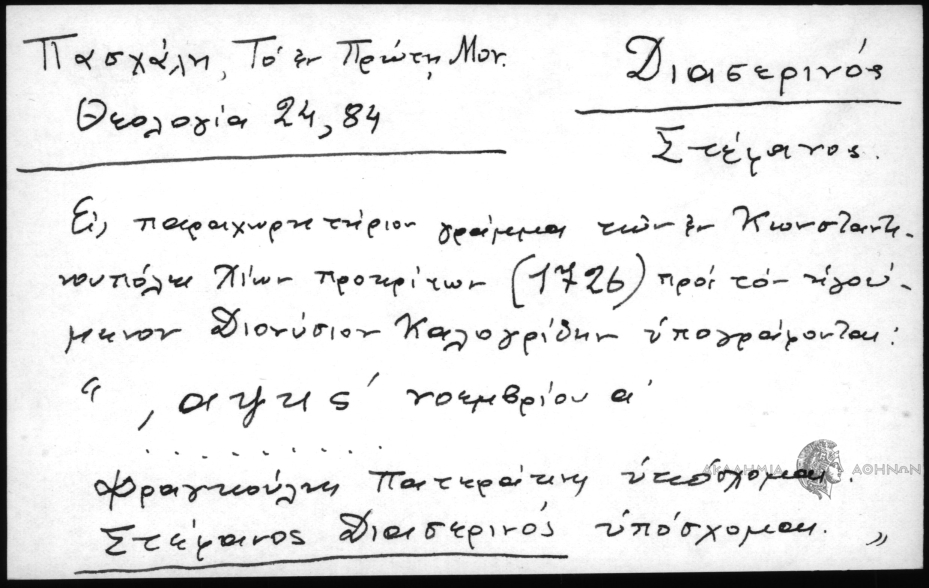 Πασχάλη, Τό ἐν Πρώτῃ Μον.
Θεολογία 24, 84
Διασερινός
Στέφανος.
Εἰς παραχωρητήριον γράμμα τῶν ἐν Κωνσταντι-
νουπόλει Χίων προκρίτων (1726) πρός τόν ἡγού-
μενον Διονύσιον Καλογρίδην ὑπογράφονται:
" ,αψκς´ νοεμβρίου α´
. . . . . . . . . .
Φραγκούλης Πατεράκης ὑπόσχομαι.
Στέφανος Διασερινός ὑπόσχομαι. "
ΑΚΑΔΗΜΙΑ ΑΘΗΝΩΝ